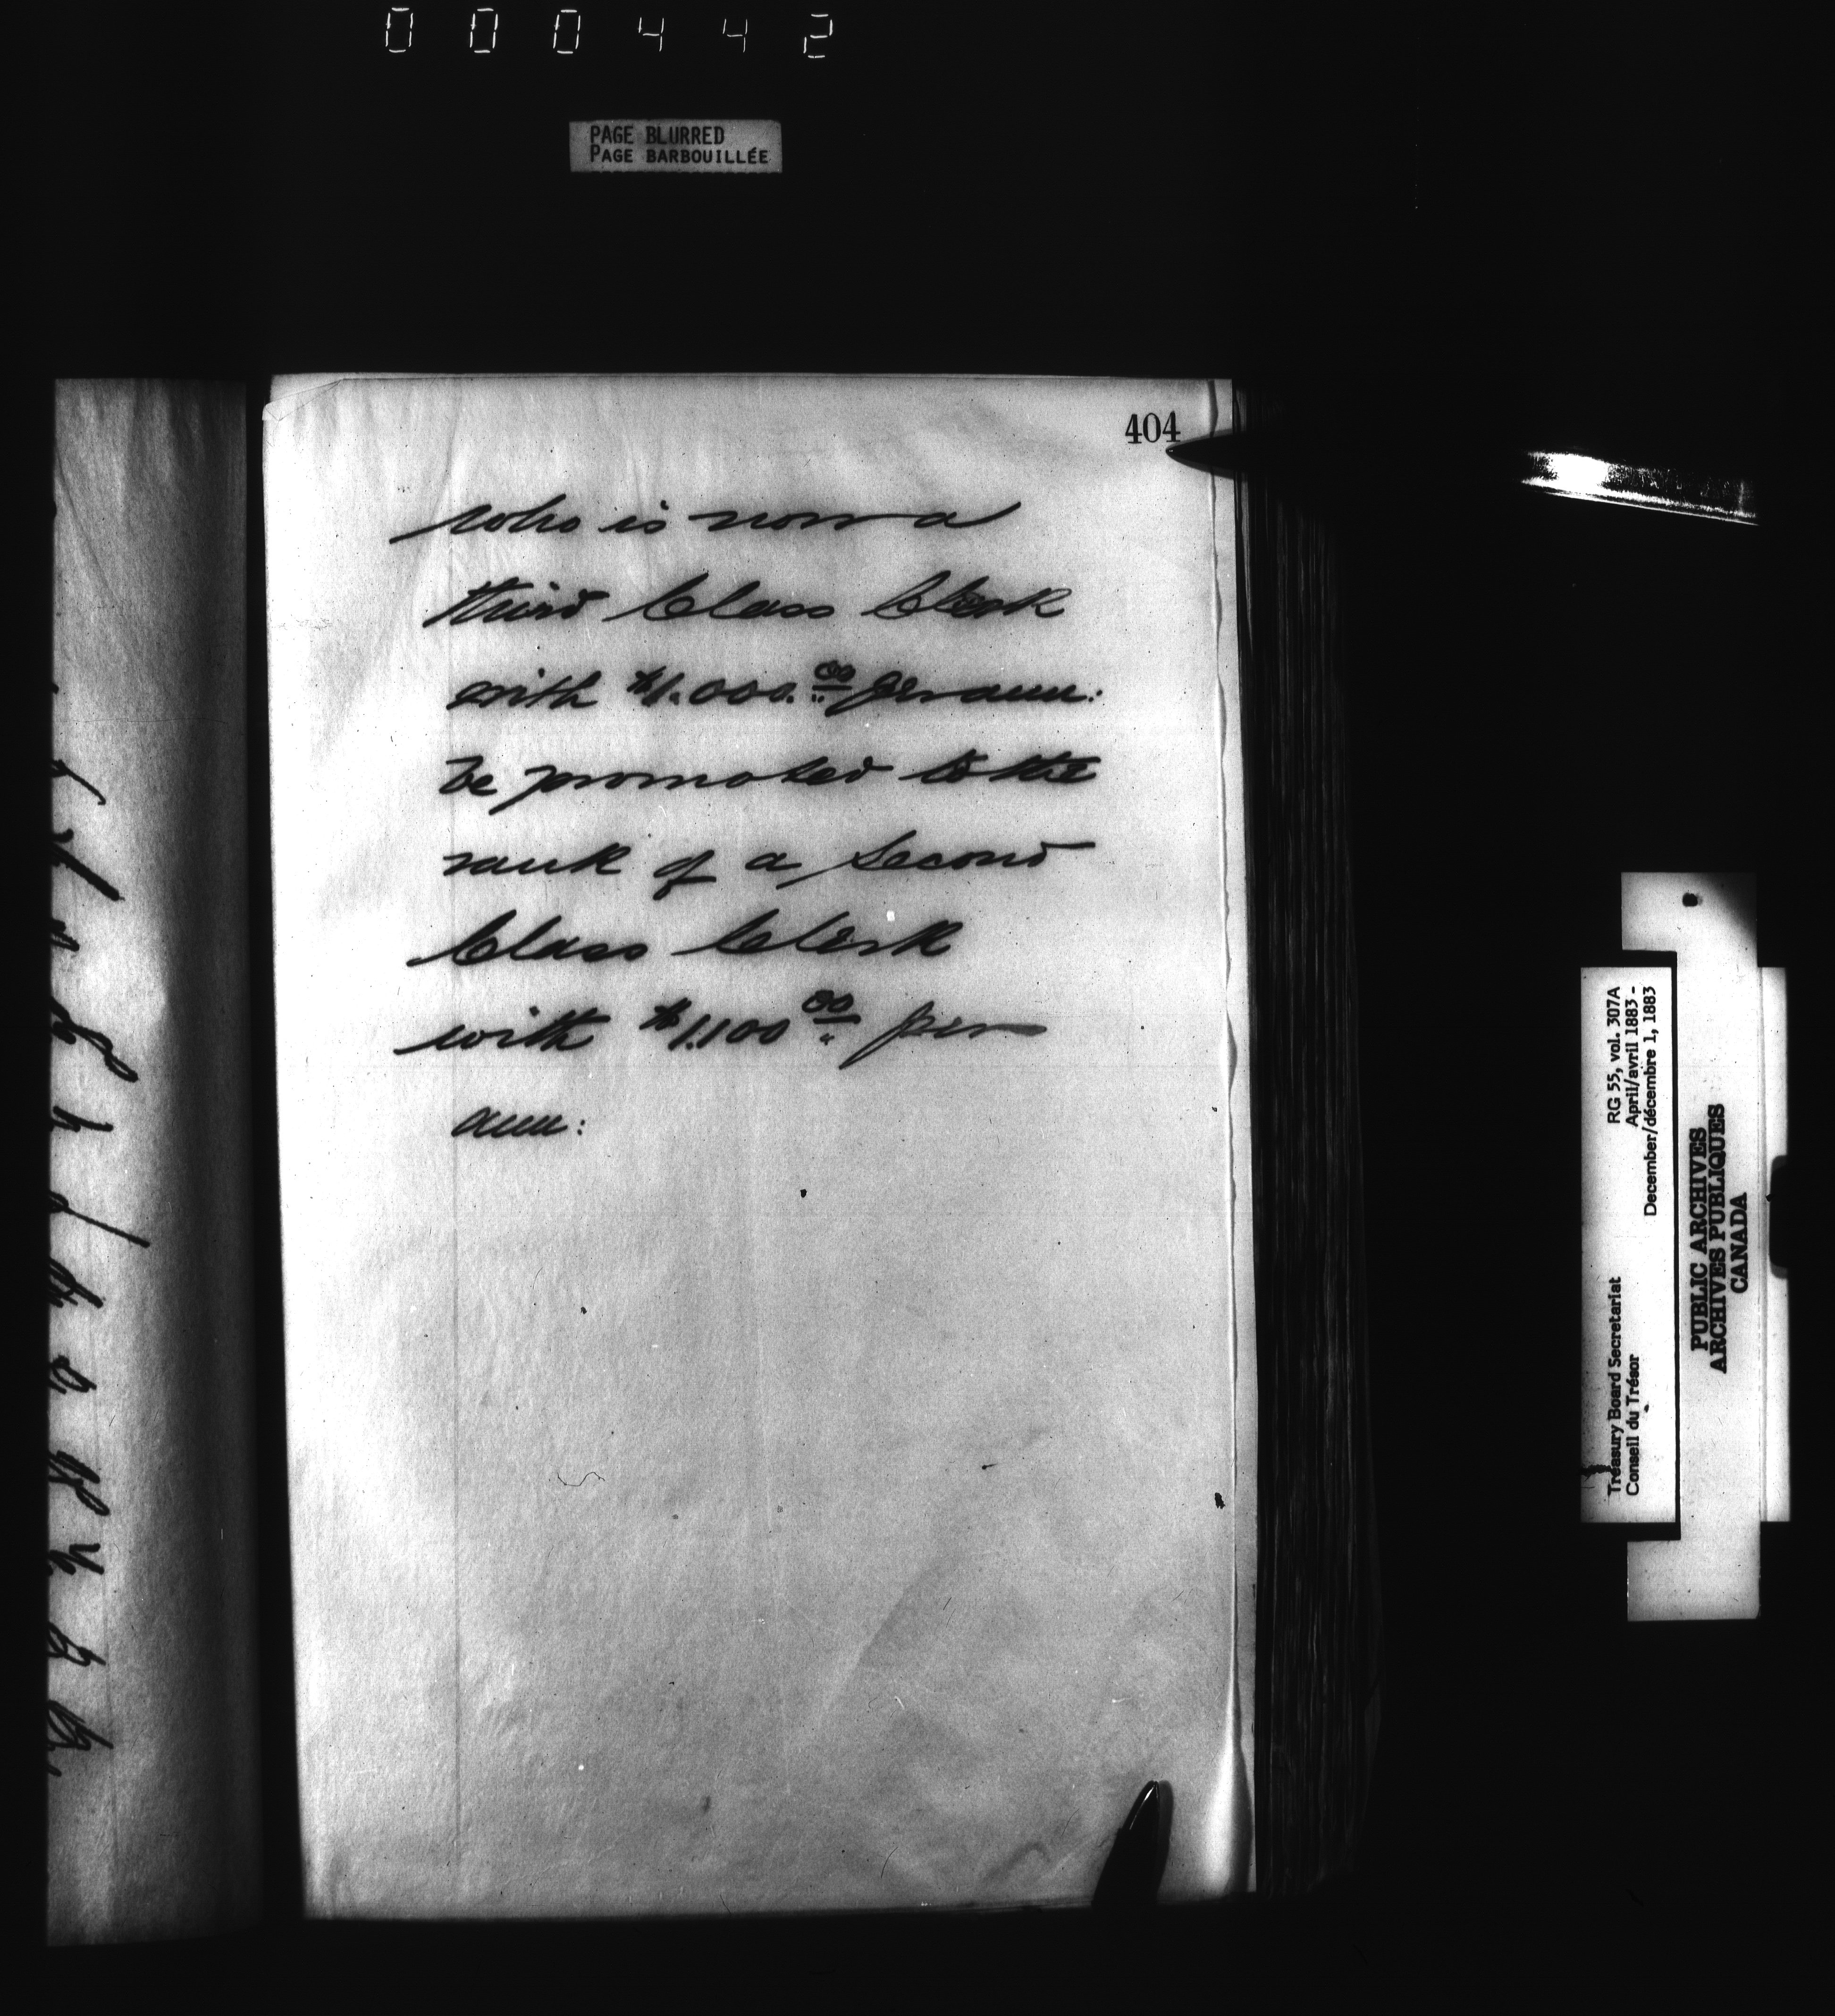 000442
PAGE BLURRED
PAGE BARBOUILLÉE
404
who is now a
third Class Clerk
with $1.000.00 per ann:
be promoted to the
rank of a Second
Class Clerk
with $1.100 00 per
ann:
Treasury Board Secretariat RG 55, vol. 307A
Conseil du Trésor April/avril 1883 -
December/décembre 1, 1883
PUBLIC ARCHIVES
ARCHIVES PUBLIQUES
CANADA